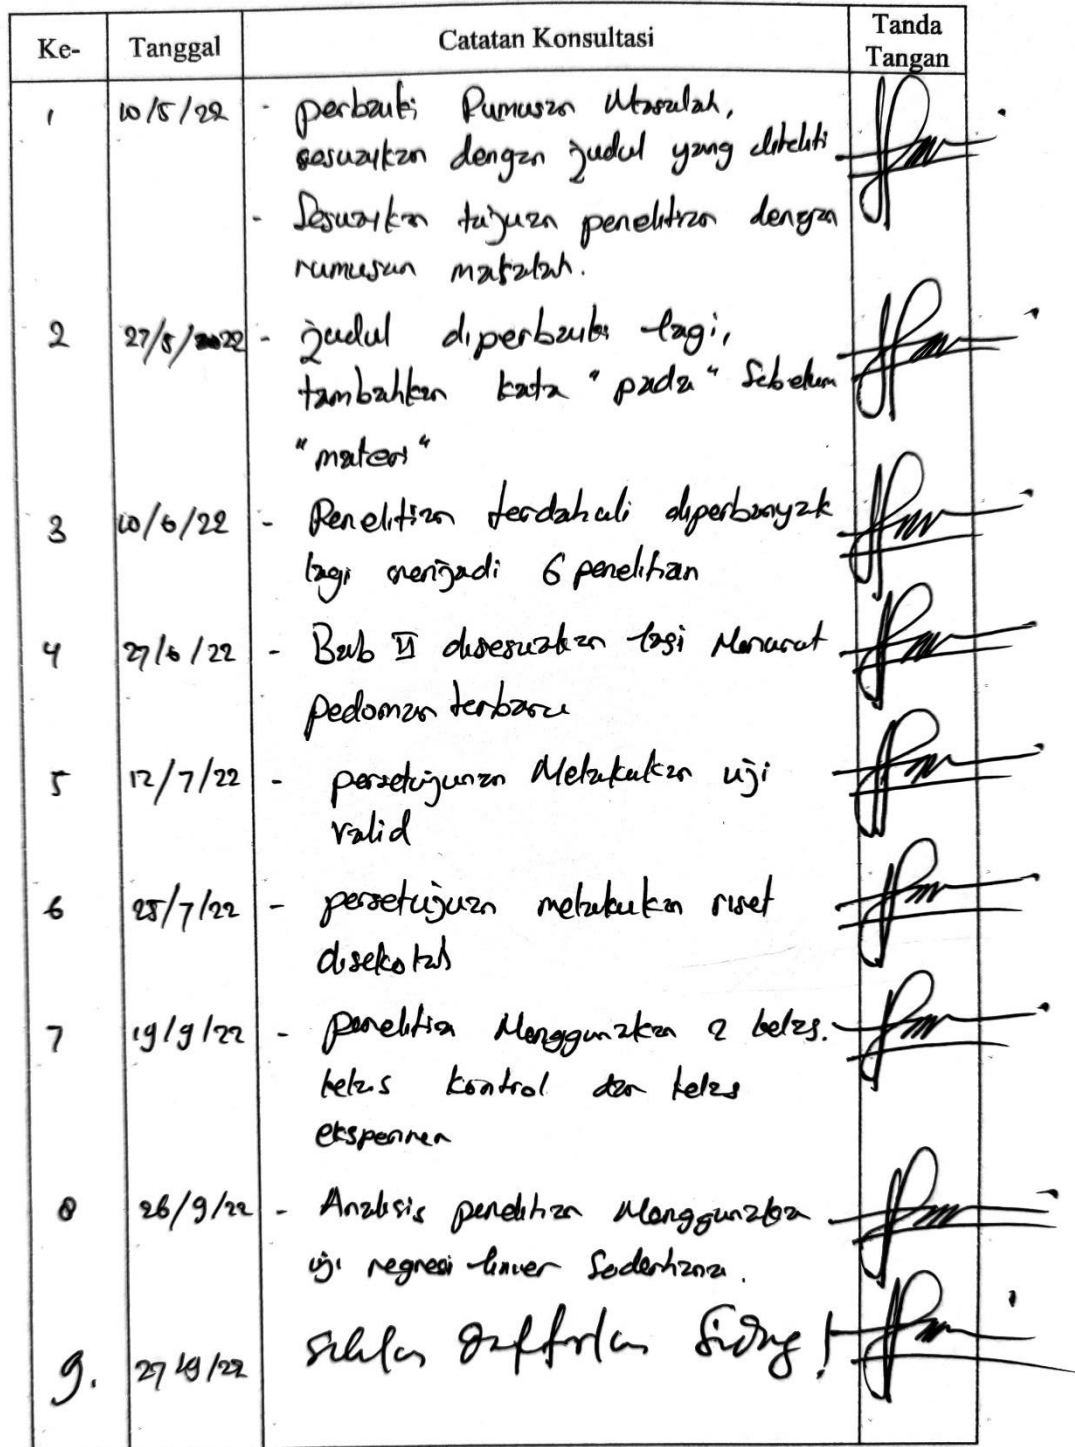 Ke- Tanggal Catatan Konsultasi Tanda
Tangan
1 10/5/22 - perbaiki Rumusan Masalah,
sesuaikan dengan judul yang diteliti
- Sesuaikan tujuan penelitian dengan
rumusan masalah.
2 27/5/22 - judul diperbaiki lagi,
tambahkan kata "pada" Sebelum
"materi"
3 10/6/22 - Penelitian terdahulu diperbanyak
lagi menjadi 6 penelitian
4 27/6/22 - Bab II disesuaikan lagi Menurut
pedoman terbaru
5 12/7/22 - persetujuan Melakukan uji
valid
6 25/7/22 - persetujuan melakukan riset
disekolah
7 19/9/22 - penelitian Menggunakan 2 kelas.
kelas kontrol dan kelas
eksperimen
8 26/9/22 - Analisis penelitian Menggunakan
uji regresi linier Sederhana.
9. 27/9/22 Silakan daftarkan Sidang!